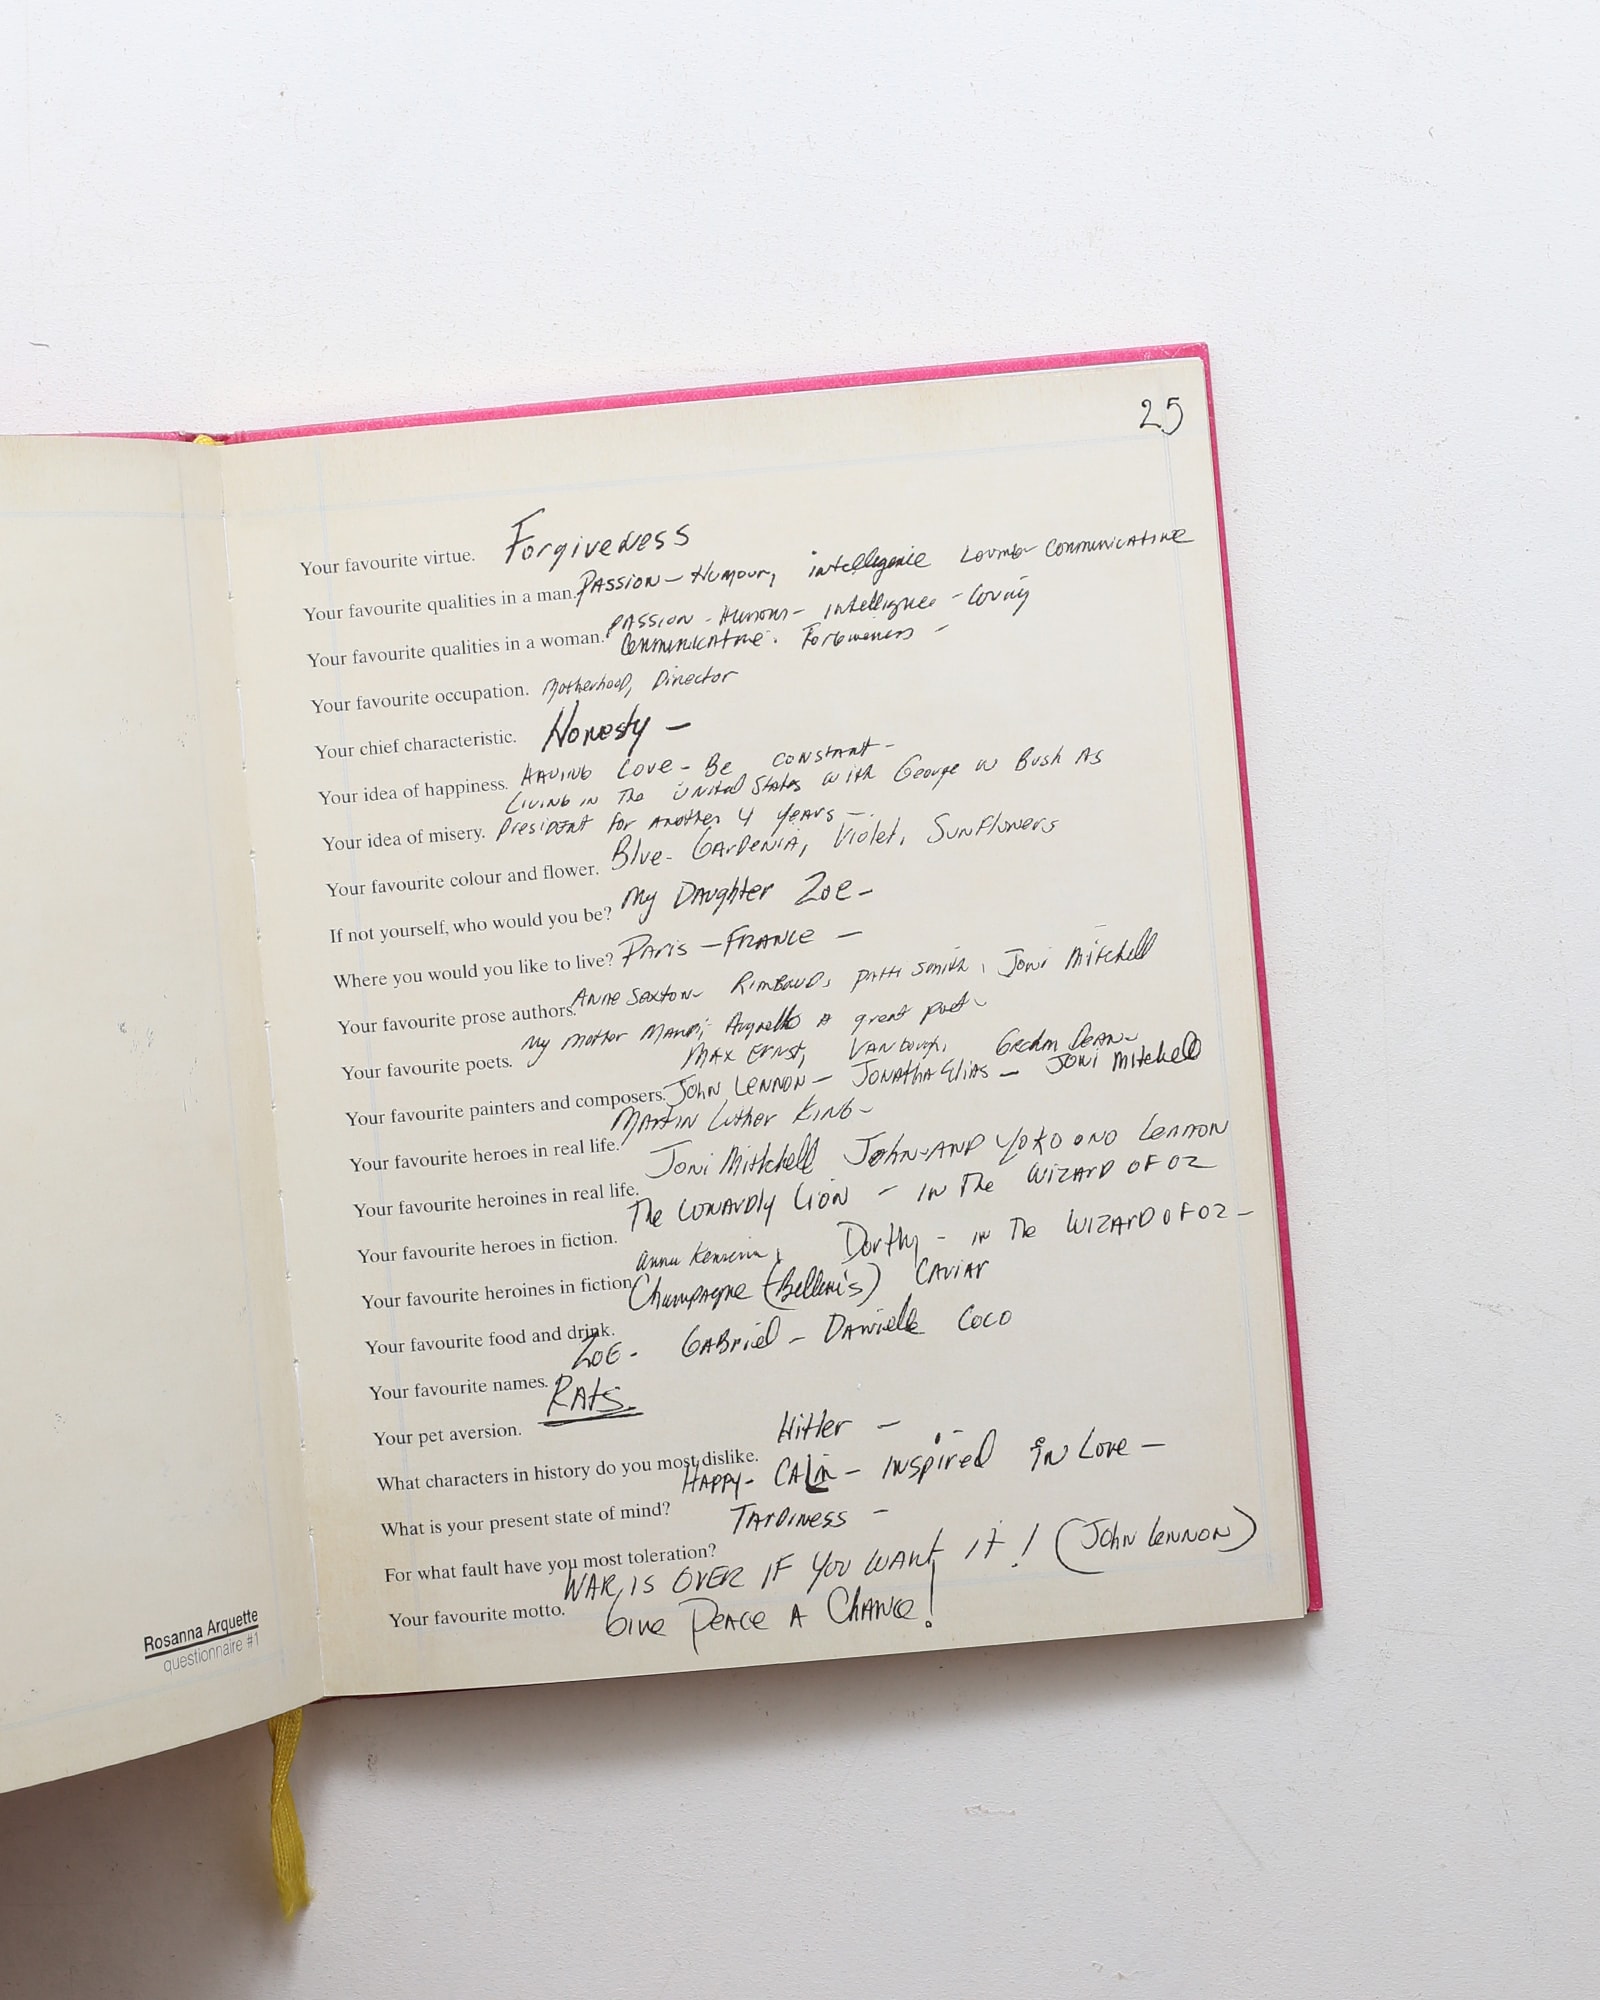 25
Your favourite virtue. Forgiveness
Your favourite qualities in a man. Passion - Humour, intelligence Loving - Communicative
Your favourite qualities in a woman. Passion - Humour - intelligence - loving
Communicative. Forgiveness -
Your favourite occupation. Motherhood, Director
Your chief characteristic. Honesty -
Your idea of happiness. Having Love - Be constant -
Your idea of misery. Living in The United States with George W Bush As
President for another 4 years -
Your favourite colour and flower. Blue - Gardenia, Violet, Sunflowers
If not yourself, who would you be? My Daughter Zoe -
Where you would you like to live? Paris - France -
Your favourite prose authors. Anne Sexton - Rimbaud, Patti Smith, Joni Mitchell
Your favourite poets. My mother Mardi Arquette A great poet -
Max Ernst,
Your favourite painters and composers. John Lennon - Elias - Joni Mitchell
Your favourite heroes in real life. Martin Luther King -
Your favourite heroines in real life. Joni Mitchell John - and Yoko Ono Lennon
Your favourite heroes in fiction. The Cowardly Lion - in The Wizard of Oz
Your favourite heroines in fiction. Anna , Dorthy - in The Wizard of Oz -
Your favourite food and drink. Champagne (Bellini's) Caviar
Your favourite names. Zoe - Gabriel - Danielle Coco
Your pet aversion. Rats.
What characters in history do you most dislike. Hitler -
What is your present state of mind? Happy - Calm - inspired in Love -
For what fault have you most toleration? Tardiness -
Your favourite motto. War is over if you want it! (John Lennon)
Give Peace A Chance!
Rosanna Arquette
questionnaire #1